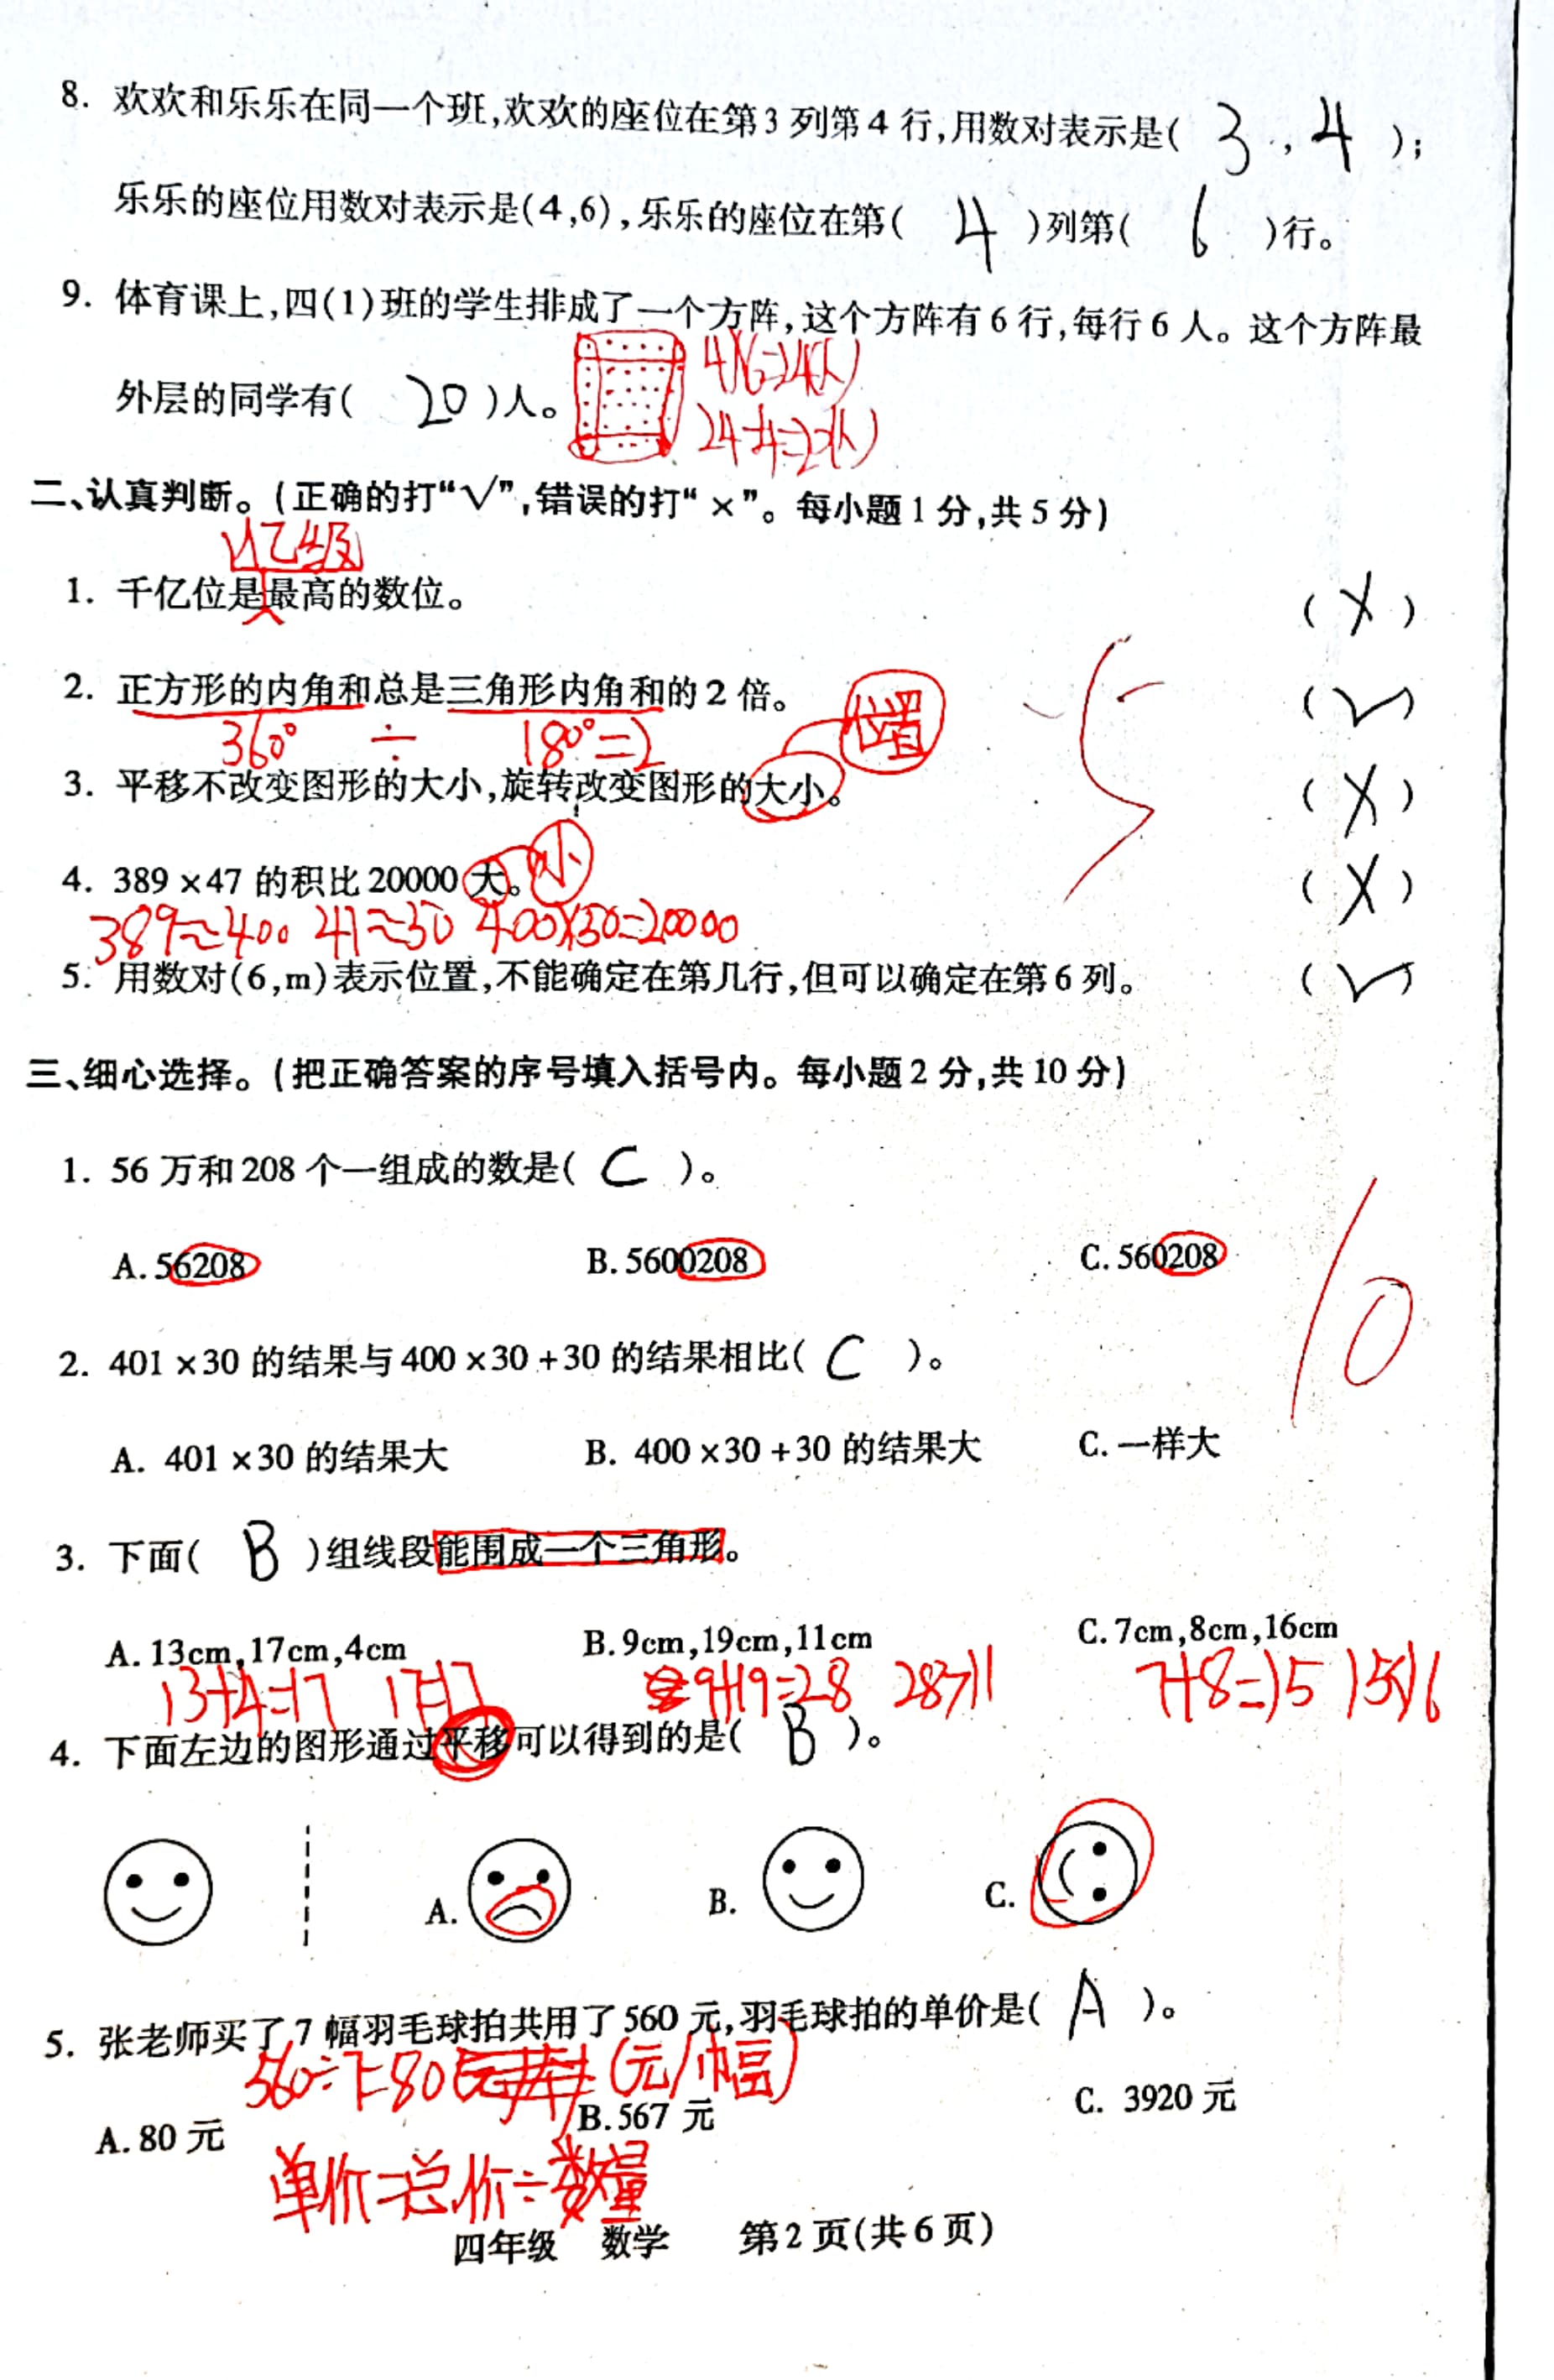 8. 欢欢和乐乐在同一个班,欢欢的座位在第3列第4行,用数对表示是( 3 , 4 );
乐乐的座位用数对表示是(4,6),乐乐的座位在第( 4 )列第( 6 )行。
9. 体育课上,四(1)班的学生排成了一个方阵,这个方阵有6行,每行6人。这个方阵最
4×6=24(人)
外层的同学有( 20 )人。
24-4=20(人)
二、认真判断。(正确的打“√”,错误的打“×”。每小题1分,共5分)
亿级
1. 千亿位是最高的数位。 ( × )
2. 正方形的内角和总是三角形内角和的2倍。 ( √ )
位置
360° ÷ 180°=2
3. 平移不改变图形的大小,旋转改变图形的大小。 ( × )
小
4. 389×47的积比20000大。 ( × )
389≈400 47≈50 400×50=20000
5. 用数对(6,m)表示位置,不能确定在第几行,但可以确定在第6列。 ( √ )
5
三、细心选择。(把正确答案的序号填入括号内。每小题2分,共10分)
1. 56万和208个一组成的数是( C )。
A. 56208 B. 5600208 C. 560208
10
2. 401×30的结果与400×30+30的结果相比( C )。
A. 401×30的结果大 B. 400×30+30的结果大 C. 一样大
3. 下面( B )组线段能围成一个三角形。
A. 13cm,17cm,4cm B. 9cm,19cm,11cm C. 7cm,8cm,16cm
13+4=17 17=17 9+19=28 28>11 7+8=15 15<16
4. 下面左边的图形通过平移可以得到的是( B )。
A. B. C.
5. 张老师买了7幅羽毛球拍共用了560元,羽毛球拍的单价是( A )。
560÷7=80 (元/幅)
A. 80元 B. 567元 C. 3920元
单价=总价÷数量
四年级 数学 第2页(共6页)